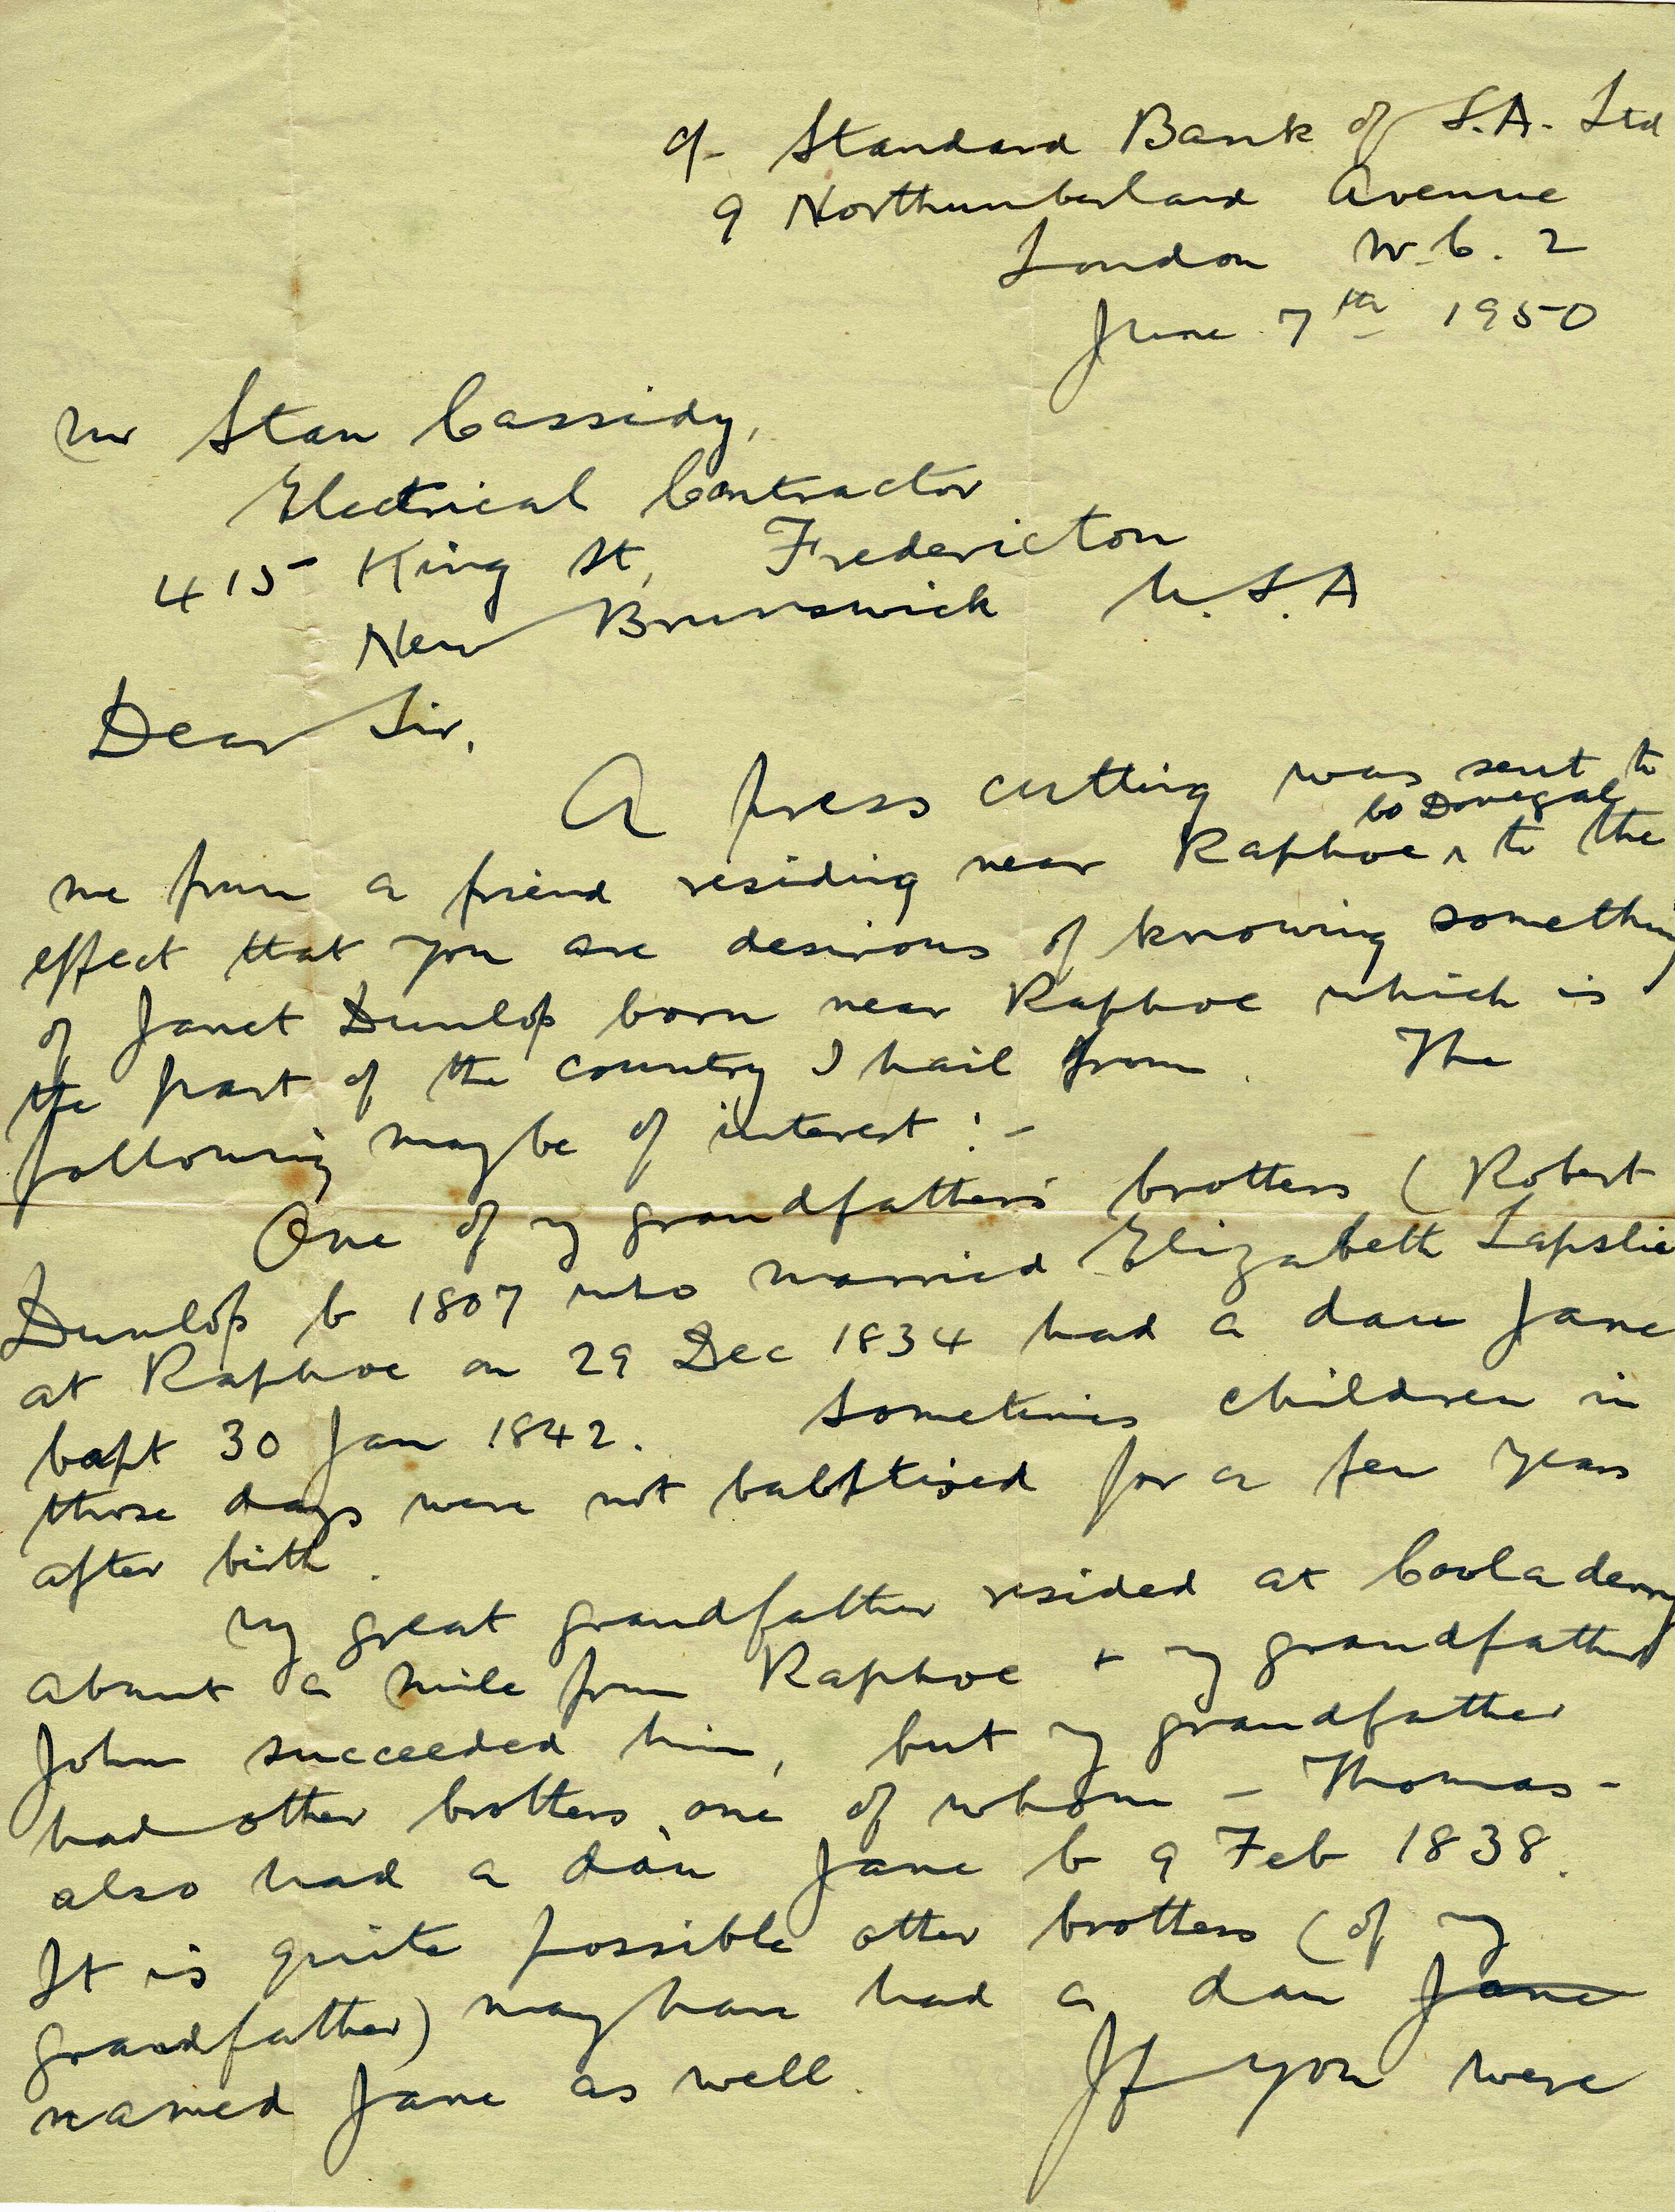 c/- Standard Bank of S.A. Ltd
9 Northumberland Avenue
London W.C. 2
June 7th 1950
Mr Stan Cassidy,
Electrical Contractor
415 King St, Fredericton
New Brunswick U.S.A
Dear Sir,
A press cutting was sent to
me from a friend residing near Raphoe ^ Co Donegal to the
effect that you are desirous of knowing something
of Janet Dunlop born near Raphoe which is
the part of the country I hail from. The
following maybe of interest :-
One of my grandfather's brothers (Robert
Dunlop b 1807 who married Elizabeth Lapslie
at Raphoe on 29 Dec 1834 had a dau Jane
bapt 30 Jan 1842. Sometimes children in
those days were not babptised for a few years
after birth.
My great grandfather resided at Cooladerry
about a mile from Raphoe + my grandfather
John succeeded him, but my grandfather
had other brothers, one of whom - Thomas -
also had a dau Jane b 9 Feb 1838.
It is quite possible other brothers (of my
grandfather) may have had a dau Jane
named Jane as well. If you were